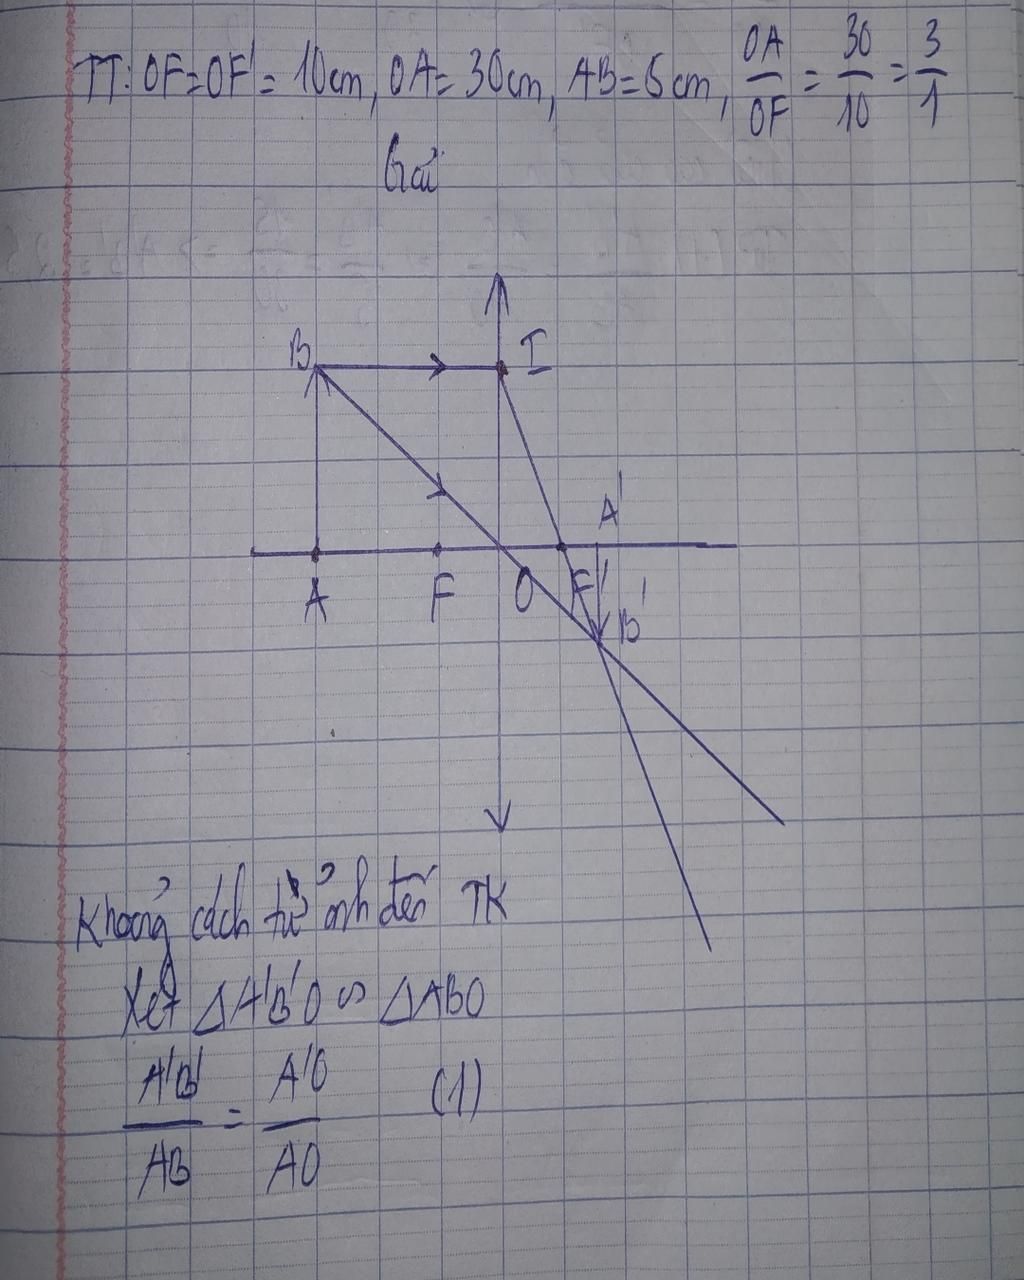 TT: OF=OF'= 10cm, OA= 30cm, AB=5cm, OA/OF = 30/10 = 3/1
Giải
B I
A'
A F O F' B'
Khoảng cách từ ảnh đến TK
Xét ΔA'B'O ∽ ΔABO
A'B'/AB = A'O/AO (1)